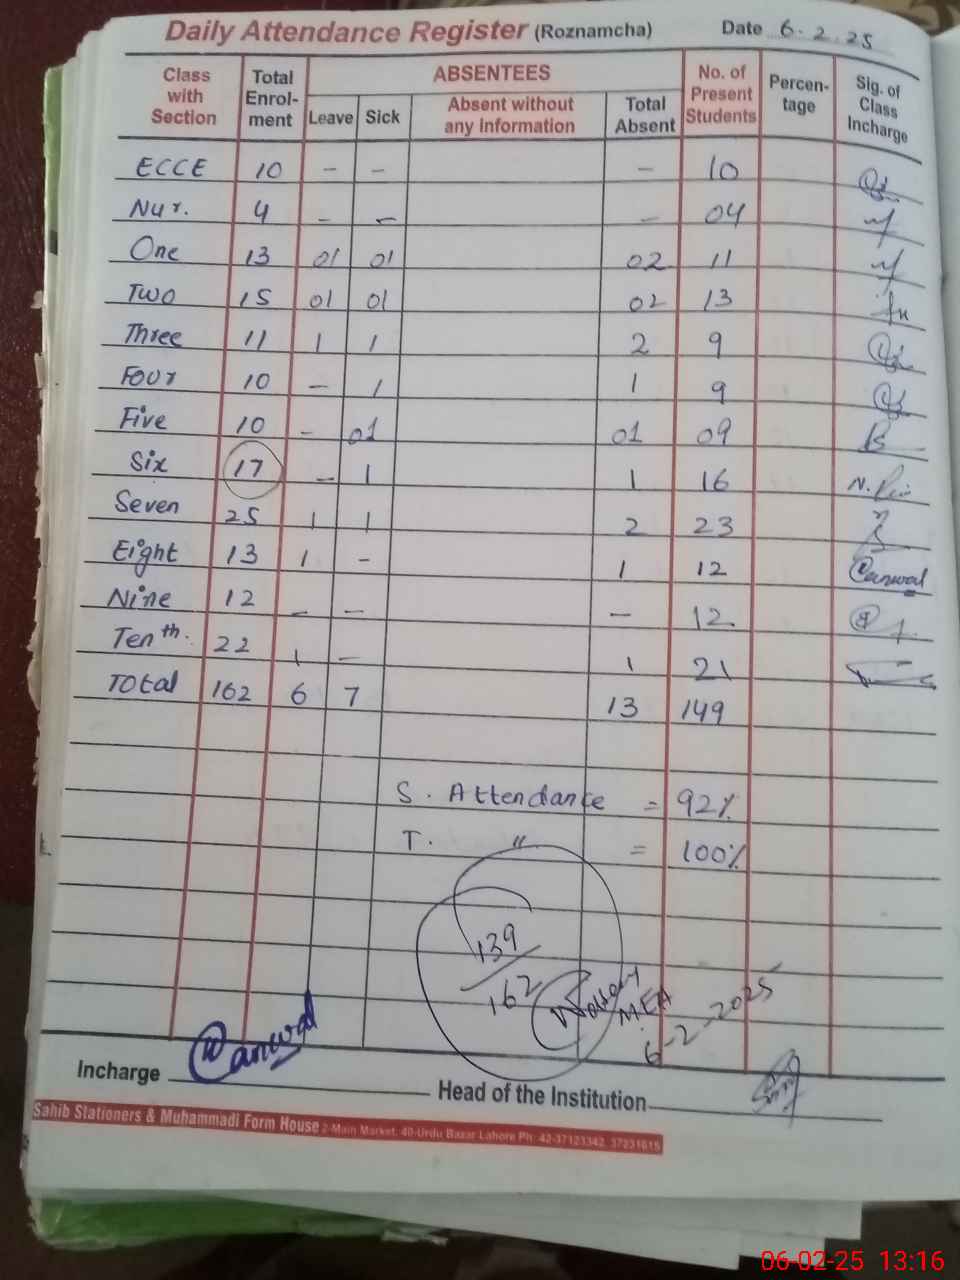 Daily Attendance Register (Roznamcha) Date 6.2.25
Class with Section Total Enrol-ment ABSENTEES No. of Present Students Percen-tage Sig. of Class Incharge
Leave Sick Absent without any information Total Absent
ECCE 10 - - - 10
Nur. 4 - - - 04
One 13 01 01 02 11
Two 15 01 01 02 13
Three 11 1 1 2 9
Four 10 - 1 1 9
Five 10 - 01 01 09
Six 17 - 1 1 16
Seven 25 1 1 2 23
Eight 13 1 - 1 12 @anwal
Nine 12 - - - 12
Tenth. 22 1 - 1 21
Total 162 6 7 13 149
S. Attendance = 92%
T. " = 100%
139
162
MEA
6-2-2025
Incharge @anwal
Head of the Institution
Sahib Stationers & Muhammadi Form House 2-Main Market, 40-Urdu Bazar Lahore Ph: 42-37123342, 37231615
06-02-25 13:16